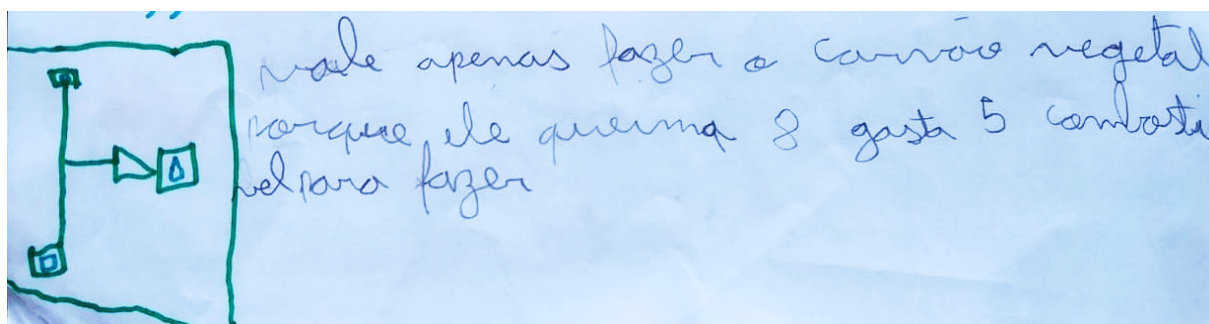 vale apenas fazer o carvão vegetal
porque ele queima 8 gasta 5 combosti
vel para fazer